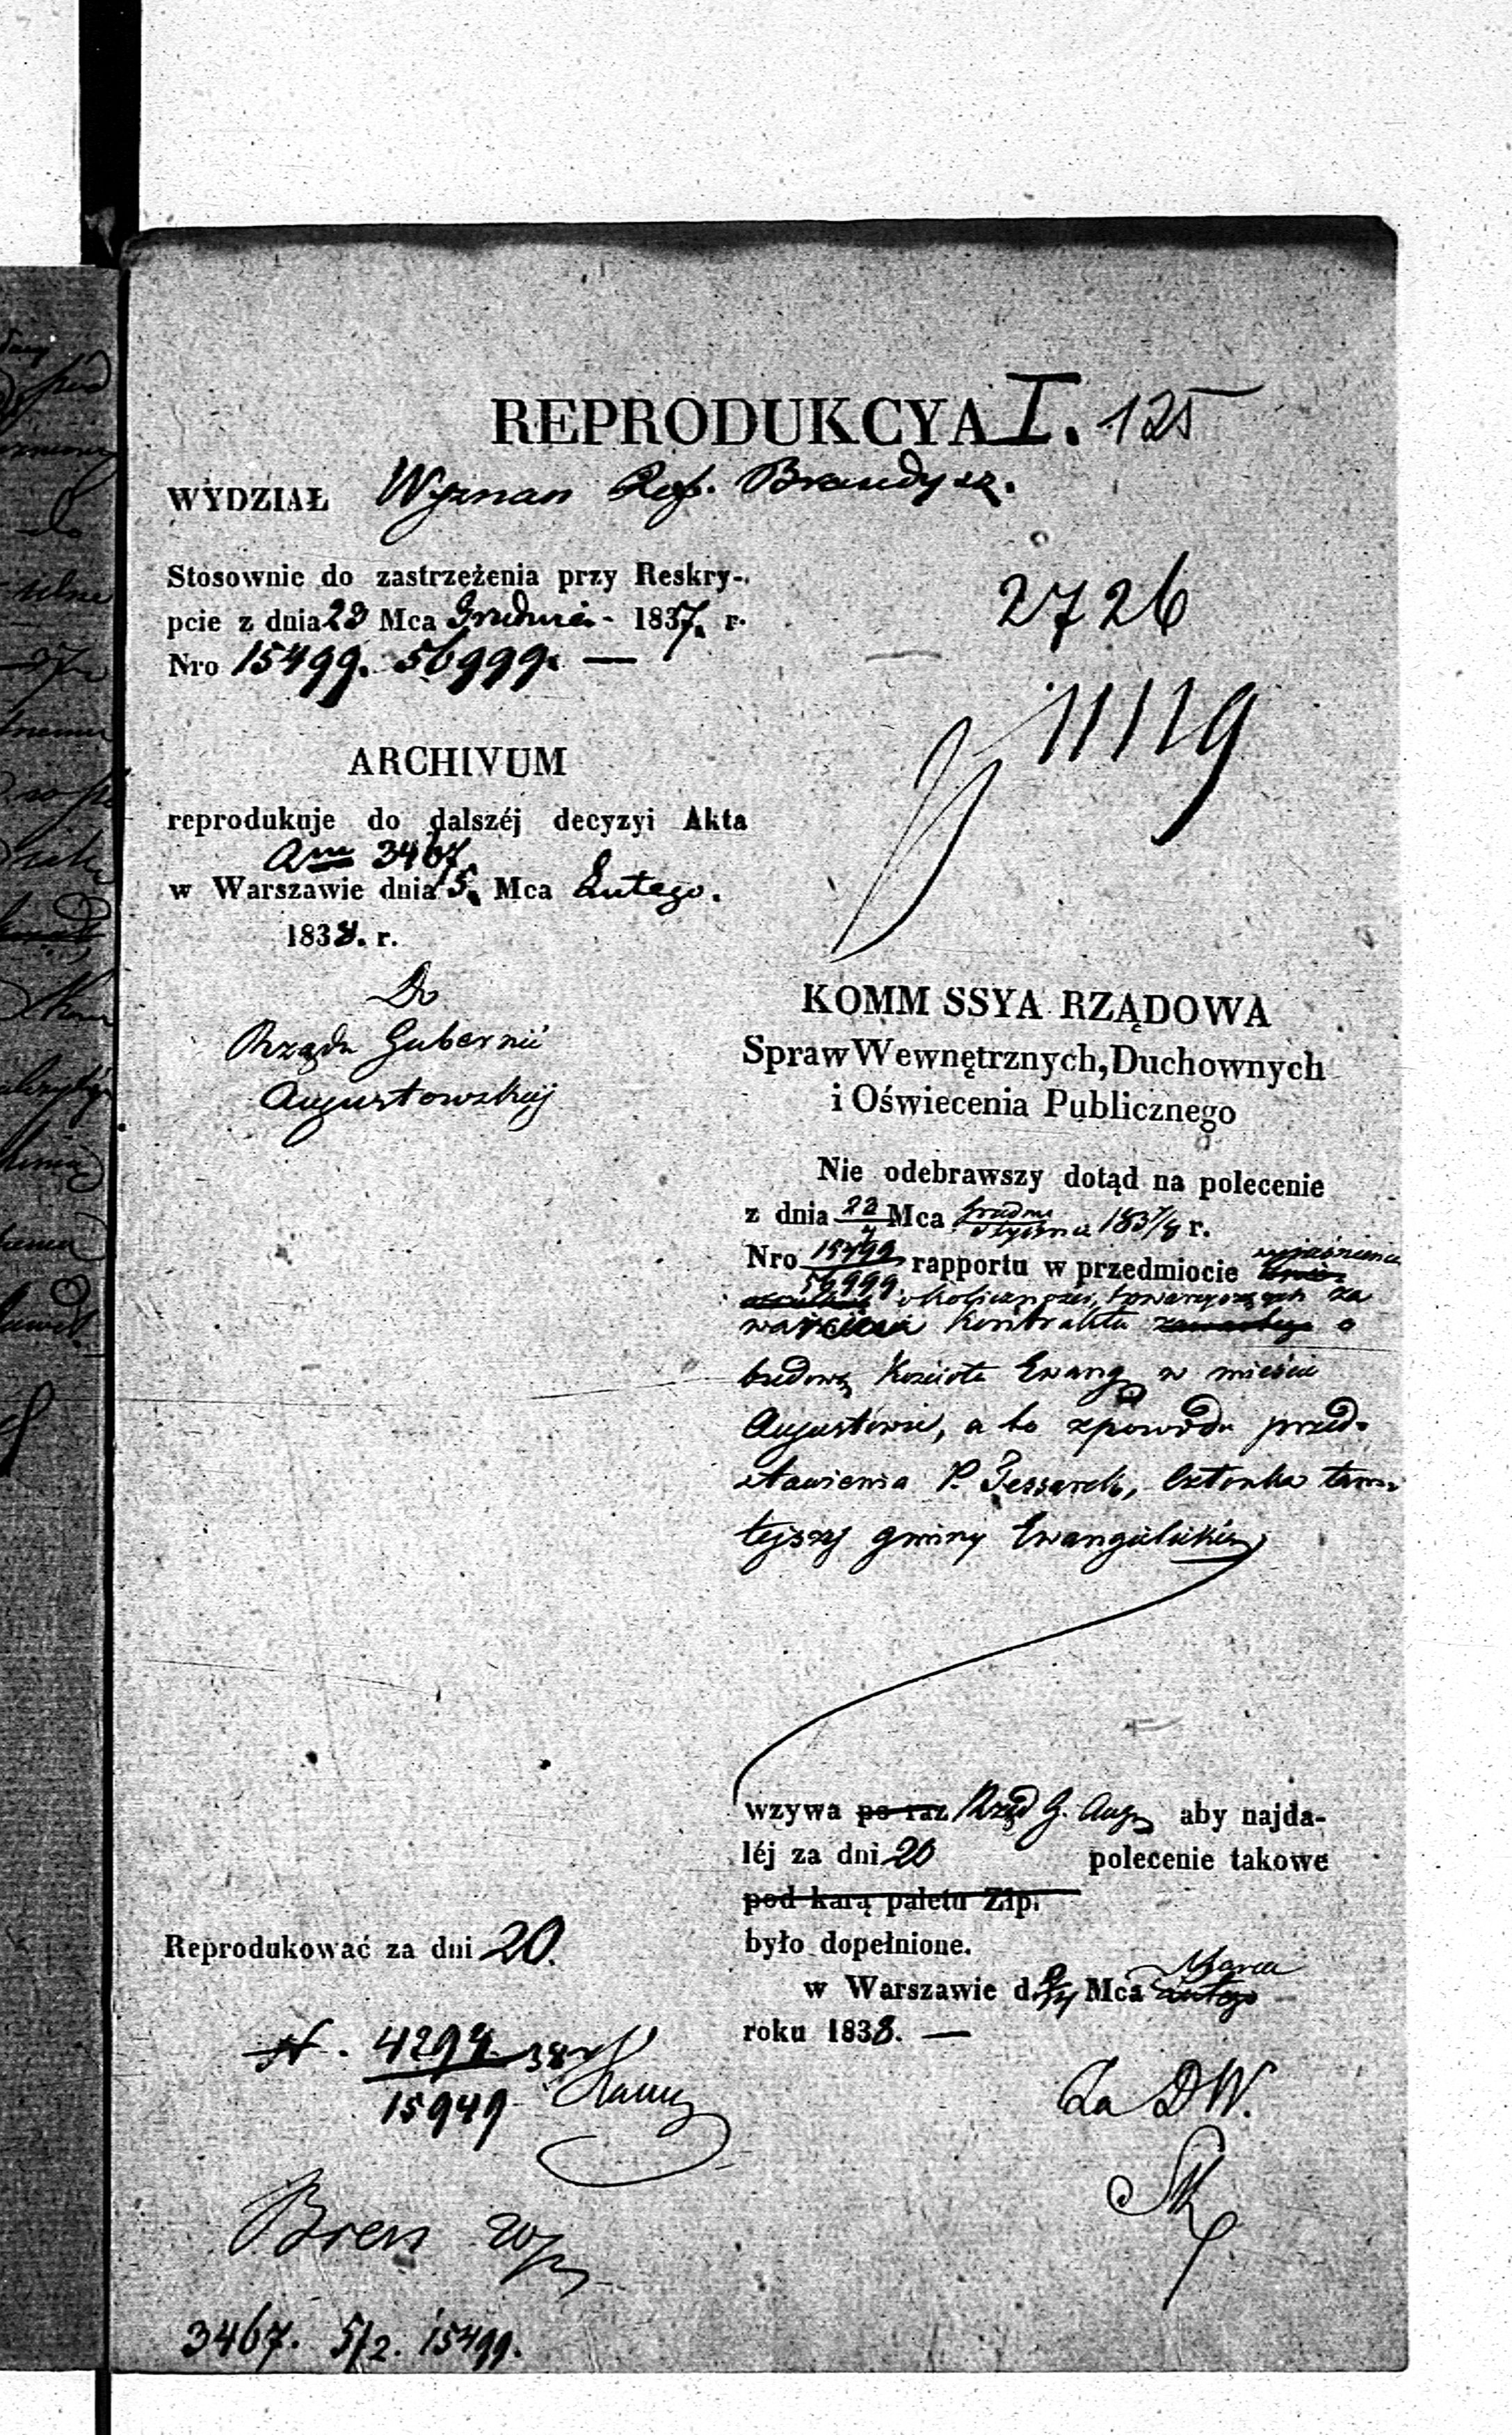 REPRODUKCYA I. 125
WYDZIAŁ Wyznan Ref. Brandysz.
Stosownie do zastrzeżenia przy Reskry-
pcie z dnia 23 Mca Grudnia - 1837. r.
Nro 15499. 56999. —
2726
11119
ARCHIVUM
reprodukuje do dalszéj decyzyi Akta
3467.
w Warszawie dnia 15. Mca Lutego.
1838. r.
Do
Rządu Gubernii
Augustowskiéj
KOMM SSYA RZĄDOWA
Spraw Wewnętrznych, Duchownych
i Oświecenia Publicznego
Nie odebrawszy dotąd na polecenie
z dnia 23/4 Mca Grudnia/Stycznia 1837/8 r.
Nro 15499/56999 rapportu w przedmiocie wyjaśnienia
okoliczności, towarzyszących za
warcia kontraktu zawartego o
budowę Kościoła Ewang w mieście
Augustowie, a to z powodu przed-
stawienia P. Jessarek, Członka tam-
tejszej gminy Ewangelickiej
wzywa po raz Rząd G. Aug aby najda-
léj za dni 20 polecenie takowe
pod karą paletu Złp.
było dopełnione.
w Warszawie d. 2/14 Mca Lutego Marca
roku 1838. —
Reprodukować za dni 20.
4294 38
15949
Za DW.
3467. 5/2. 15499.